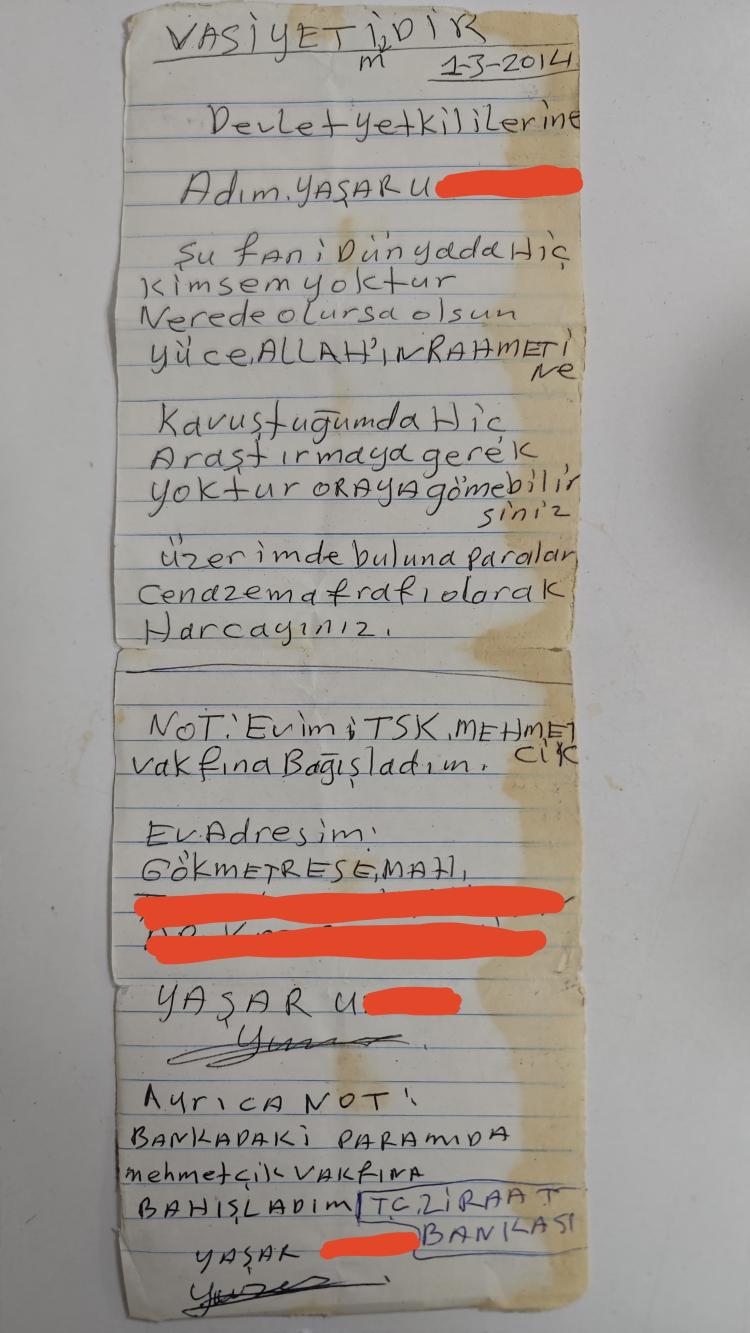 VASİYETİMDİR
1-3-2014
Devlet yetkililerine
Adım. YAŞAR U
Şu fani Dünyada Hiç
Kimsem yoktur
Nerede olursa olsun
yüce, ALLAH'IN RAHMETİ
NE
Kavuştuğumda Hiç
Araştırmaya gerek
yoktur ORAYA gömebilir
siniz
üzerimde buluna paralar
Cenazema frafı olarak
Harcayınız.
NOT: Evimi TSK. MEHMET
CİK
Vakfına Bağışladım.
Ev. Adresim:
GÖKMETRESE, MAH,
YAŞAR U
AYrıCA NOT:
BANKADAKİ PARAMIDA
mehmetçik VAKFıNA
BAHIŞLADIM TC. ZİRAAT
BANKASI
YAŞAR